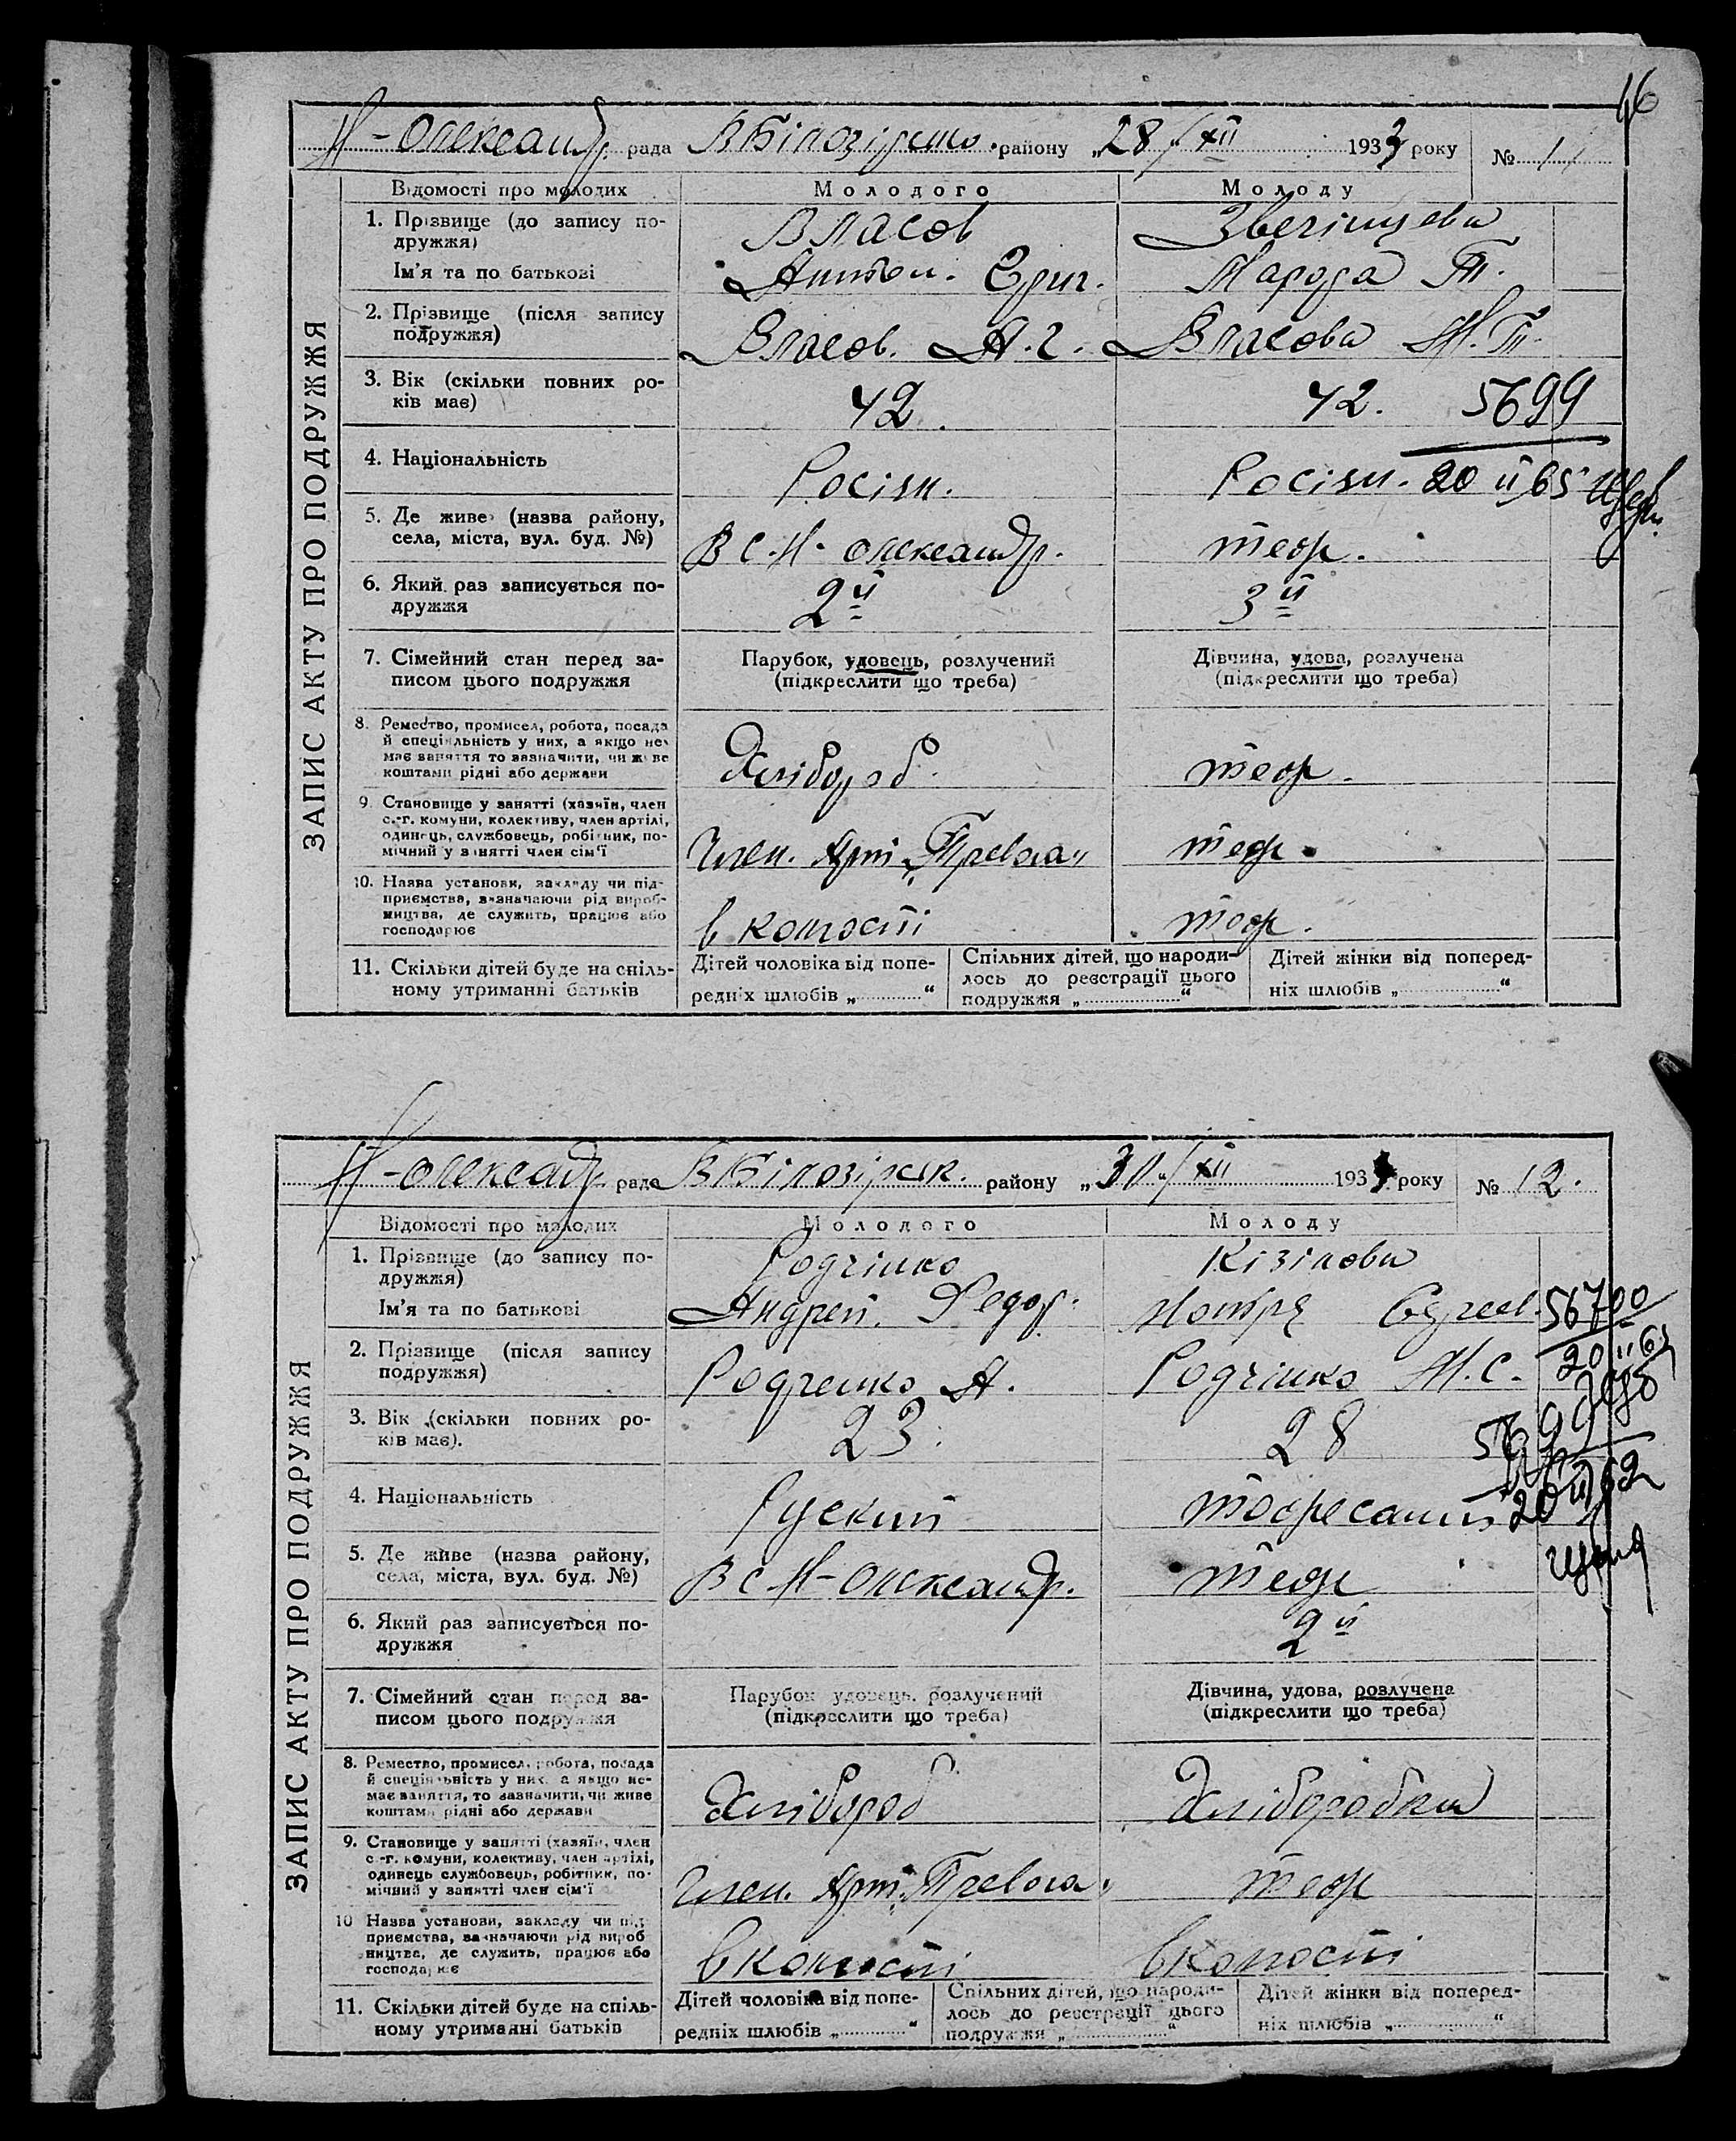 46
Н-Олександр. рада В Білозірсько. району „28"/XII 1933 року № 11
ЗАПИС АКТУ ПРО ПОДРУЖЖЯ
Відомості про молодих Молодого Молоду
1. Прізвище (до запису по-
дружжя) Власов
Ім'я та по батькові Антон. Григ. Т.
2. Прізвище (після запису
подружжя) Власов. А.Г. Власова М.Т.
3. Вік (скільки повних ро-
ків має) 42. 42. 5699
4. Національність Росіян. Росіян. 20 II 65
5. Де живе (назва району,
села, міста, вул. буд. №) В с. Н-Олександр. теж.
6. Який раз записується по-
дружжя 2й 3й
7. Сімейний стан перед за-
писом цього подружжя
Парубок, удовець, розлучений
(підкреслити що треба)
Дівчина, удова, розлучена
(підкреслити що треба)
8. Ремество, промисел, робота, посада
й спеціяльність у них, а якщо не-
має заняття то зазначити, чи живе
коштами рідні або держави
Хлібороб. теж.
9. Становище у занятті (хазяїн, член
с.-г. комуни, колективу, член артілі,
одинець, службовець, робітник, по-
мічний у занятті член сім'ї
Член. Арт. „Тревога" теж.
10. Назва установи, закладу чи під-
приємства, зазначаючи рід вироб-
ництва, де служить, працює або
господарює
теж.
11. Скільки дітей буде на спіль-
ному утриманні батьків
Дітей чоловіка від попе-
редніх шлюбів „ “
Спільних дітей, що народи-
лось до реєстрації цього
подружжя „ “
Дітей жінки від поперед-
ніх шлюбів „ “
Н-Олександр. рада В Білозірськ. району „30"/XII 193 року № 12.
ЗАПИС АКТУ ПРО ПОДРУЖЖЯ
Відомості про молодих Молодого Молоду
1. Прізвище (до запису по-
дружжя) Родчінко Кізілова
Ім'я та по батькові Андрей. Федор. Мотря 56700
2. Прізвище (після запису
подружжя) Родченко А. Родчінко М.С. 20 II 65
3. Вік (скільки повних ро-
ків має). 23. 28 5699
4. Національність Руский 20 II
5. Де живе (назва району,
села, міста, вул. буд. №) В с Н-Олександр. теж
6. Який раз записується по-
дружжя 2й
7. Сімейний стан перед за-
писом цього подружжя
Парубок удовець, розлучений
(підкреслити що треба)
Дівчина, удова, розлучена
(підкреслити що треба)
8. Ремество, промисел, робота, посада
й спеціяльність у них, а якщо не-
має заняття, то зазначити, чи живе
коштами рідні або держави
Хлібороб Хліборобка
9. Становище у занятті (хазяїн, член
с.-г. комуни, колективу, член артілі,
одинець службовець, робітник, по-
мічний у занятті член сім'ї
Член. Арт. „Тревога" теж
10 Назва установи, закладу чи під-
приємства, зазначаючи рід вироб
ництва, де служить, працює або
господарює
11. Скільки дітей буде на спіль-
ному утриманні батьків
Дітей чоловіка від попе-
редніх шлюбів „ “
Спільних дітей, що народи-
лось до реєстрації цього
подружжя „ “
Дітей жінки від поперед-
ніх шлюбів „ “